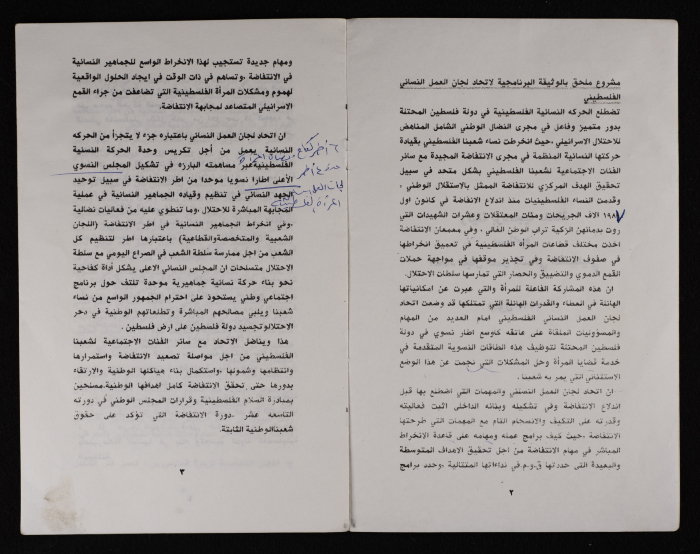 مشروع ملحق بالوثيقة البرنامجية لاتحاد لجان العمل النسائي
الفلسطيني
تضطلع الحركه النسائية الفلسطينية في دولة فلسطين المحتلة
بدور متميز وفاعل في مجرى النضال الوطني الشامل المناهض
للاحتلال الاسرائيلي ،حيث انخرطت نساء شعبنا الفلسطيني بقيادة
حركتها النسائية المنظمة في مجرى الانتفاضة المجيدة مع سائر
الفئات الاجتماعية لشعبنا الفلسطيني بشكل متحد في سبيل
تحقيق الهدف المركزي للانتفاضة الممثل بالاستقلال الوطني ،
وقدمت النساء الفلسطينيات منذ اندلاع الانفاضة في كانون اول
١٩٨٧ الاف الجريحات ومئات المعتقلات وعشرات الشهيدات التي
روت بدمائهن الزكية تراب الوطن الغالي ، وفي معمعان الانتفاضة
اخذت مختلف قطاعات المرأه الفلسطينية في تعميق انخراطها
في صفوف الانتفاضة وفي تجذير موقفها في مواجهة حملات
القمع الدموي والتضييق والحصار التي تمارسها سلطات الاحتلال.
ان هذه المشاركة الفاعلة للمرأة والتي عبرت عن امكانياتها
الهائلة في العطاء والقدرات الهائلة التي تمتلكها قد وضعت اتحاد
لجان العمل النسائي الفلسطيني امام العديد من المهام
والمسؤوليات الملقاة على عاتقه كاوسع اطار نسوي في دولة
فلسطين المحتلة لتوظيف هذه الطاقات النسوية المتقدمة في
خدمة قضايا المرأة وحل المشكلات التي نجمت عن هذا الوضع
الاستثنائي التي يمر به شعبنا.
ان اتحاد لجان العمل النسئي والمهمات التي اضطلع بها قبل
اندلاع الانتفاضة وفي تشكيله وبنائه الداخلي اثبت فعاليته
وقدرته على التكيف والانسجام التام مع المهمات التي طرحتها
الانتفاضة ،حيث كيف برامج عمله ومهامه على قاعدة الانخراط
المباشر في مهام الانتفاضة من اجل تحقيق الاهداف المتوسطة
والبعيدة التي حددتها ق.و.م.في نداءاتها المتتالية ،وحدد برامج
٢
ومهام جديدة تستجيب لهذا الانخراط الواسع للجماهير النسائية
في الانتفاضة ،وتساهم في ذات الوقت في ايجاد الحلول الواقعية
لهموم ومشكلات المرأة الفلسطينية التي تضاعفت من جراء القمع
الاسرائيلي المتصاعد لمجابهة الانتفاضة.
ان اتحاد لجان العمل النسائي باعتباره جزء لا يتجزأ من الحركه
النسائية يعمل من أجل تكريس وحدة الحركة النسئية
الفلسطينيةعبر مساهمته البارزه في تشكيل المجلس النسوي
الأعلى اطارا نسويا موحدا من اطر الانتفاضة في سبيل توحيد
الجهد النسائي في تنظيم وقياده الجماهير النسائية في عملية
المجابهة المباشرة للاحتلال ،وما تنطوي عليه من فعاليات نضالية
،وفي انخراط الجماهير النسائية في اطر الانتفاضة (اللجان
الشعبية والمتخصصةوالقطاعية) باعتبارها اطر لتنظيم كل
الشعب من اجل ممارسة سلطة الشعب في الصراع اليومي مع سلطة
الاحتلال متسلحات ان المجلس النسائي الاعلى يشكل أداة كفاحية
نحو بناء حركة نسائية جماهيرية موحدة تلتف حول برنامج
اجتماعي وطني يستحوذ على احترام الجمهور الواسع من نساء
شعبنا ويلبي مصالحهم المباشرة و تطلعاتهم الوطنية في دحر
الاحتلالوتجسيد دولة فلسطين على ارض فلسطين .
هذا ويناضل الاتحاد مع سائر الفئات الاجتماعية لشعبنا
الفلسطيني من اجل مواصلة تصعيد الانتفاضة واستمرارها
وانتظامها وشمولها ،واستكمال بناء هياكلها الوطنية والارتقاء
بدورها حتى تحقق الانتفاضة كامل اهدافها الوطنية.مسلحين
بمبادرة السلام الفلسطينية وقرارات المجلس الوطني في دورته
التاسعه عشر .دورة الانتفاضة التي تؤكد على حقوق
شعبناالوطنية الثابتة.
٣